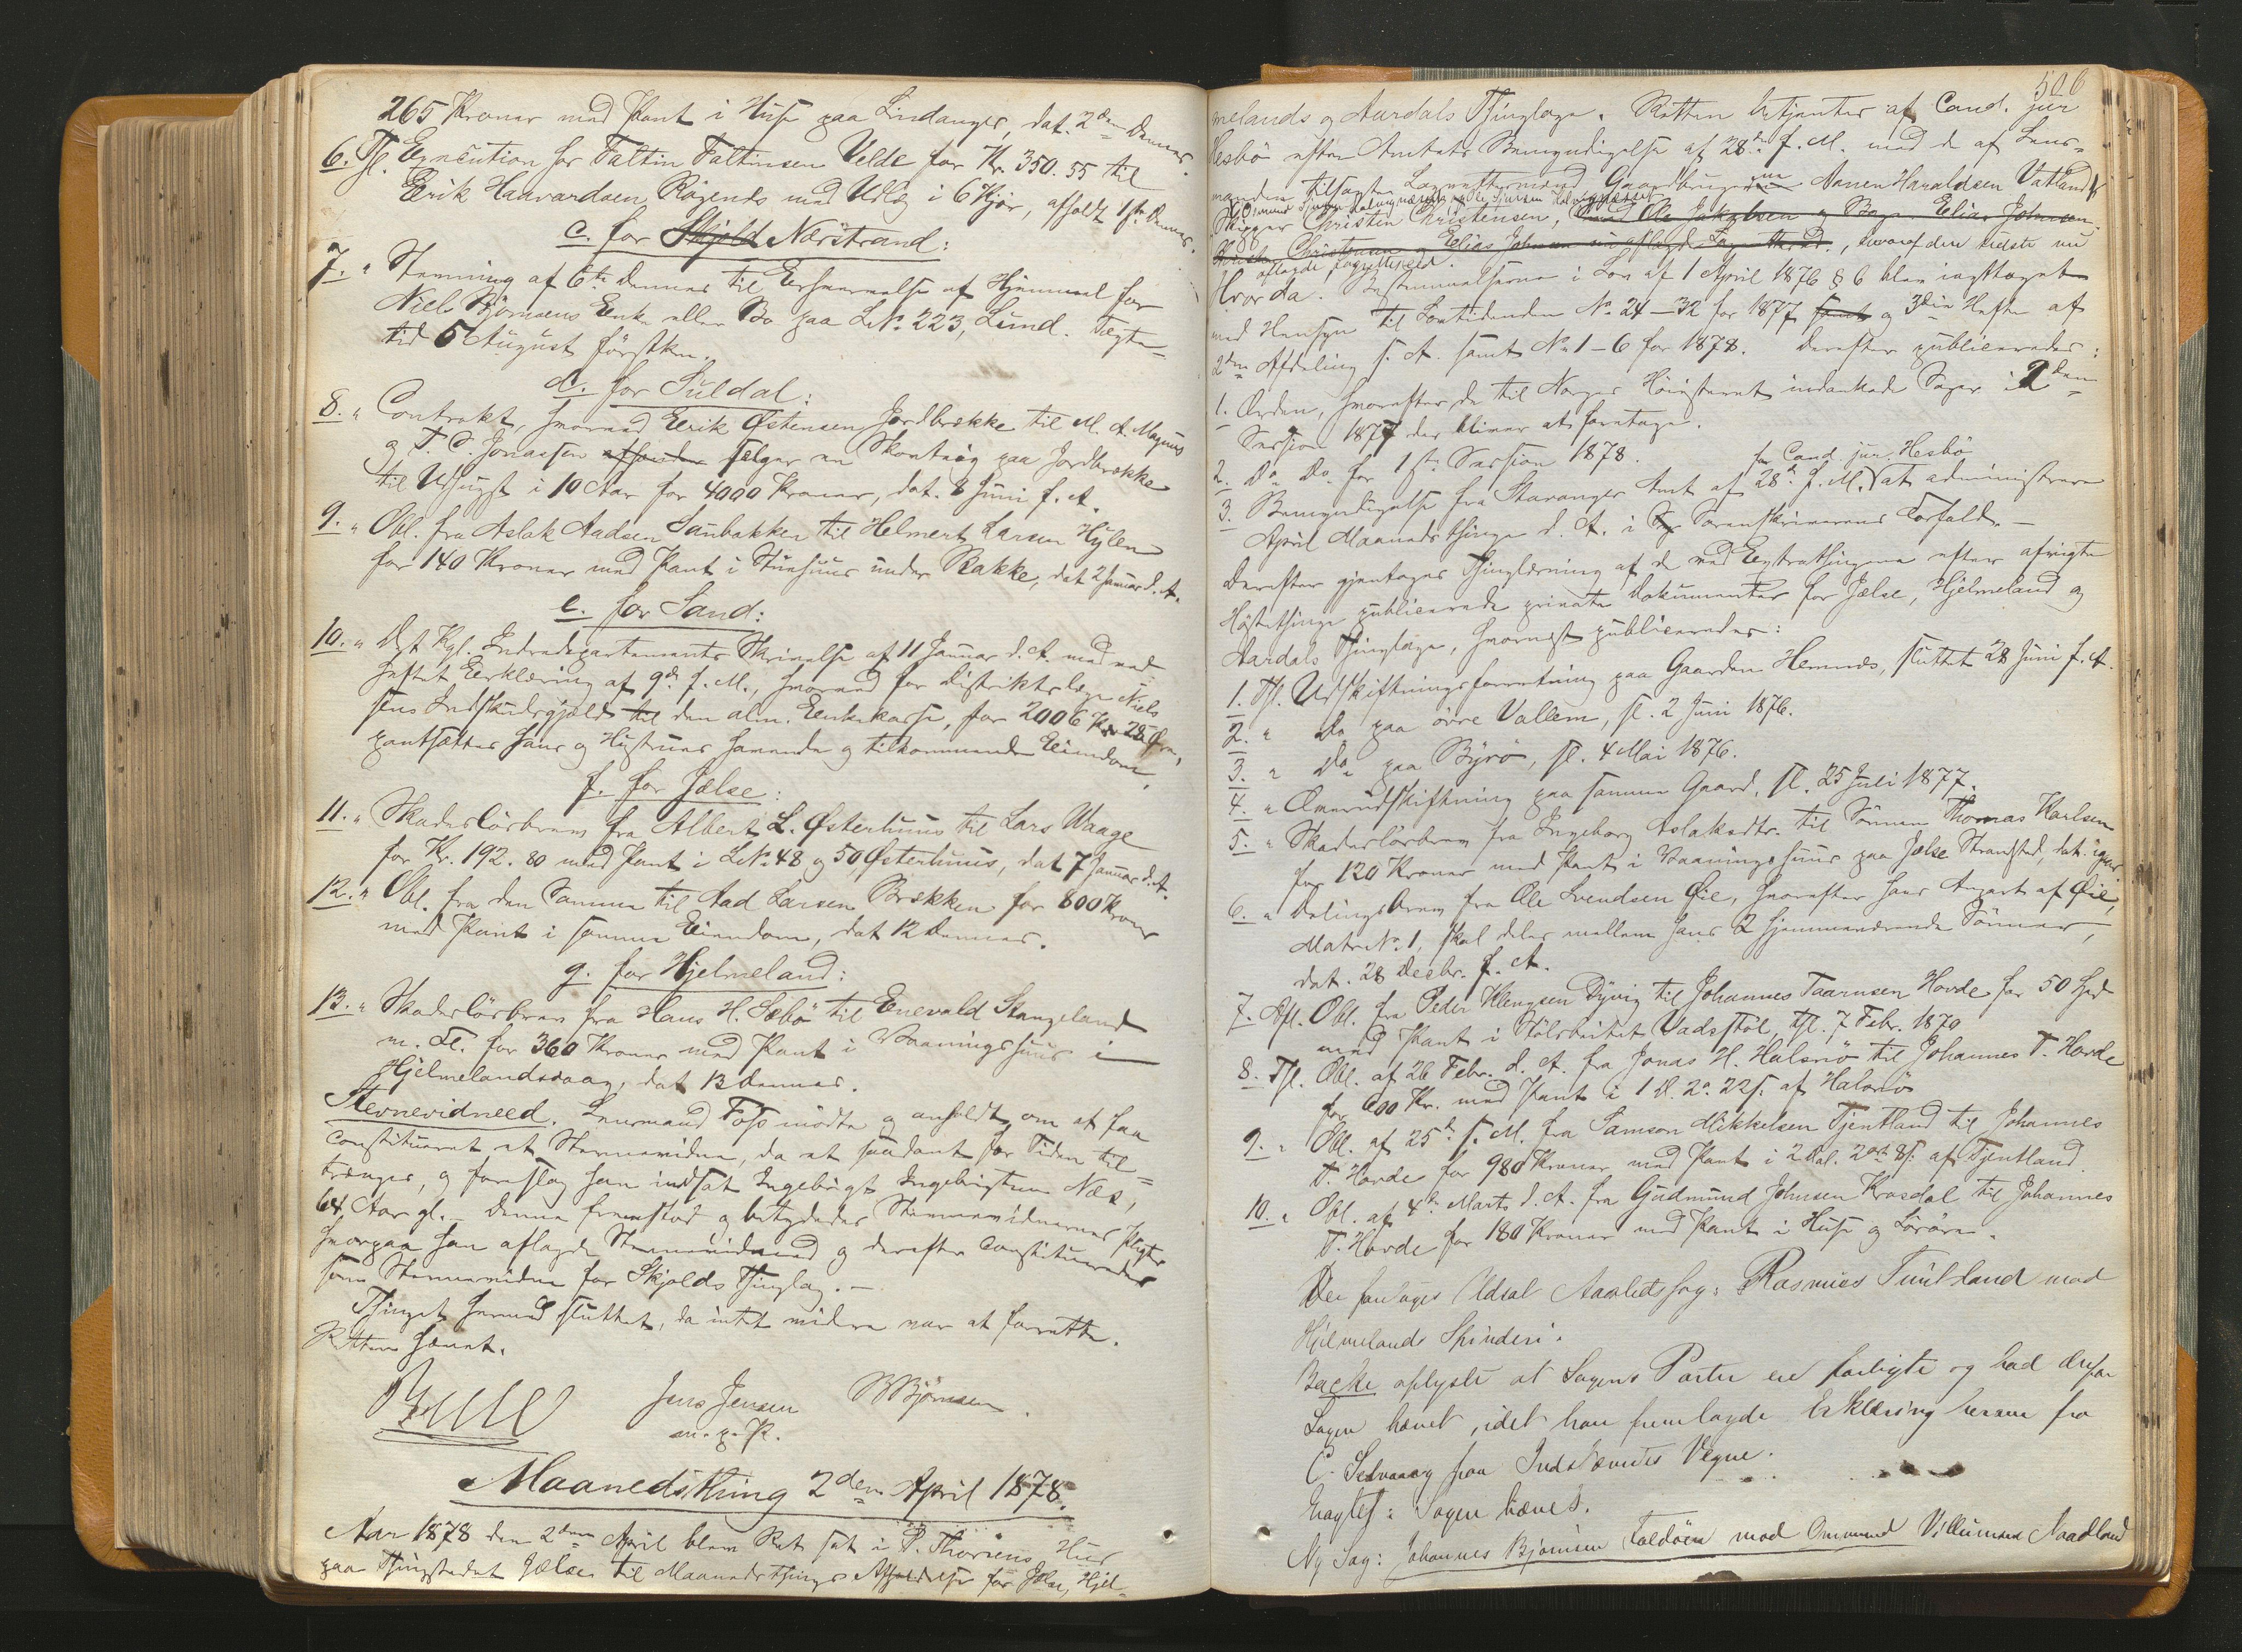 265 Kroner med Pant i Huse paa Lindanger, dat. 2den dennes.
6. Thl. Execution for Faltin Faltinsen Velde for Kr. 350.55 til
Erik Haavardsen Røgends med Udlæg i 6 Kjør, afholdt 1ste dennes.
c. for Skjold Nærstrand:
7. " Stevning af 6te dennes til Erhvervelse af Hjemmel for
Niels Bjørnsens Enke eller Bo paa LNo. 223, Lund. Tægte-
tid 5 August førstk.
d. for Suldal:
8. " Contrakt, hvorved Erik Østensen Jordbrække til M. A. Magnus
og T. C. Jonassen afhænder sælger en Skovteig paa Jordbrække
til Uhugst i 10 Aar for 4000 Kroner, dat. 8 Juni f. A.
9. " Obl. fra Aslak Aadsen Saubakken til Helmert Larsen Hylen
for 140 Kroner med Pant i Stuehuus under Rakke, dat 2 Januar d. A.
e. for Sand:
10. " Det Kgl. Indredepartements Skrivelse af 11 Januar d. A. med ved-
heftet Erklæring af 9de f. M., hvorved for Distriktslæge Niels
sens Indskudsgjæld til den alm. Enkekasse, for 2006 Kr 28 Øre,
pantsættes hans og Hustrues havende og tilkommende Eiendom.
f. for Jælse:
11. " Skadesløsbrev fra Albert L. Østerhuus til Lars Waage
for Kr. 192.80 med Pant i LNo. 48 og 50 Østerhuus, dat 7 Januar d. A.
12. " Obl. fra den Samme til Aad Larsen Brækken for 800 Kroner
med Pant i samme Eiendom, dat 12 dennes.
g. for Hjelmeland:
13. " Skadesløsbrev fra Hans H. Sæbø til Enevald Stangeland
m. Fl. for 360 Kroner med Pant i Vaaningshuus i
Hjelmelandsvaag, dat 13 dennes.
Stevnevidneed. Lensmand Foss mødte og anholdt om at faa
constitueret et Stevnevidne, da et saadant for Tiden til-
trænges, og foreslog han indsat Ingebrigt Ingebrigtsen Næs,
64 Aar gl. – Denne fremstod og betydedes Stevnevidnernes Pligter
hvorpaa han aflagde Stevnevidneed og derefter constitueredes
som Stevnevidne for Skjolds Thinglag. –
Thinget hermed sluttet, da intet videre var at forrette.
Retten hævet.
Jens Jensen BBjørnsen
m. p. P.
Maanedsthing 2den April 1878.
Aar 1878 den 2den April blev Ret sat i P. Thorsens Hus
paa Thingstedet Jælse til Maanedsthings Afholdelse for Jælse, Hjel-
506
melands og Aardals Thinglage. Retten betjentes af Cand. jur
Hesbø efter Amtets Bemyndigelse af 28de f. M. med de af Lens-
manden tilsagte Lagrettesmænd Gaardbrugerne Nanen Haraldsen Vatland
Skipper Christen Christensen, Ole Jakobsen og Elias Johnsen
Christensen og Elias Johnsen, hvoraf den sidste nu
aflagde Lagrettesed.
Hvorda. Bestemmelserne i Lov af 1 April 1876 § 6 blev iagttaget
med Hensyn til Lovtidenden No. 24–32 for 1877 samt og 3die Hefte af
2den Afdeling s. A. samt No. 1–6 for 1878. Derefter publiceredes:
1. Orden, hvorefter de til Norges Høiesteret indankede Sager i 2den
Session 1877 der bliver at foretage.
2. Do Do for 1ste Session 1878.
for Cand. jur. Hesbø
3. Bemyndigelse fra Stavanger Amt af 28de f. M. at administrere
April Maanedsthinge d. A. i Sorenskriverens Forfald. –
Derefter gjentages Thinglæsning af de ved Extrathingene efter afvigte
Høstethinge publicerede private Dokumenter for Jælse, Hjelmeland og
Aardals Thinglage, hvornæst publiceredes:
1. Thl. Udskiftningsforretning paa Gaarden Hemnæs, sluttet 28 Juni f. A.
2. " Do paa øvre Vallem, sl. 2 Juni 1876.
3. " Do paa Byrø, sl. 4 Mai 1876.
4. " Overudskiftning paa samme Gaard, sl. 25 Juli 1877.
5. " Skadesløsbrev fra Ingeborg Aslaksdtr. til Sønnen Thomas Karlsen
for 120 Kroner med Pant i Vaaningshuus paa Jælse Strandsted, dat. igaar
6. " Delingsbrev fra Ole Svendsen Øie, hvorefter hans Anpart af Øie,
Matr.No. 1, skal deles mellem hans 2 hjemmeværende Sønner,
dat. 28 Decbr. f. A.
7. Afl. Obl. fra Peder Klengsen Dyvig til Johannes Taarnsen Hovde for 50 Spd
med Pant i Stølsbeitet Vadsstøl, thl. 7 Febr. 1870
8. Thl. Obl. af 26 Febr. d. A. fra Jonas H. Halsnø til Johannes T. Hovde
for 600 Kr. med Pant i 1 D. 2 o. 22 s. af Halsnø
9. " Obl. af 25de f. M. fra Samson Mikkelsen Tjentland til Johannes
T. Hovde for 980 Kroner med Pant i 2 Dal. 2 ort 8 s. af Tjentland.
10. " Obl. af 4de Marts d. A. fra Gudmund Johnsen Krosdal til Johannes
T. Hovde for 180 Kroner med Pant i Huse og Løsøre.
Der foretoges Udsat Aastedssag: Rasmus Tuntland mod
Hjelmelands Spinderi.
Backe oplyste at Sagens Parter er forligte og bad derfor
Sagen hævet, idet han fremlagde Erklæring herom fra
C. Selvaag paa Indstævntes Vegne.
Eragtet: Sagen hæves.
Ny Sag: Johannes Bjørnsen Foldøen mod Ommund Villumsen Naadland